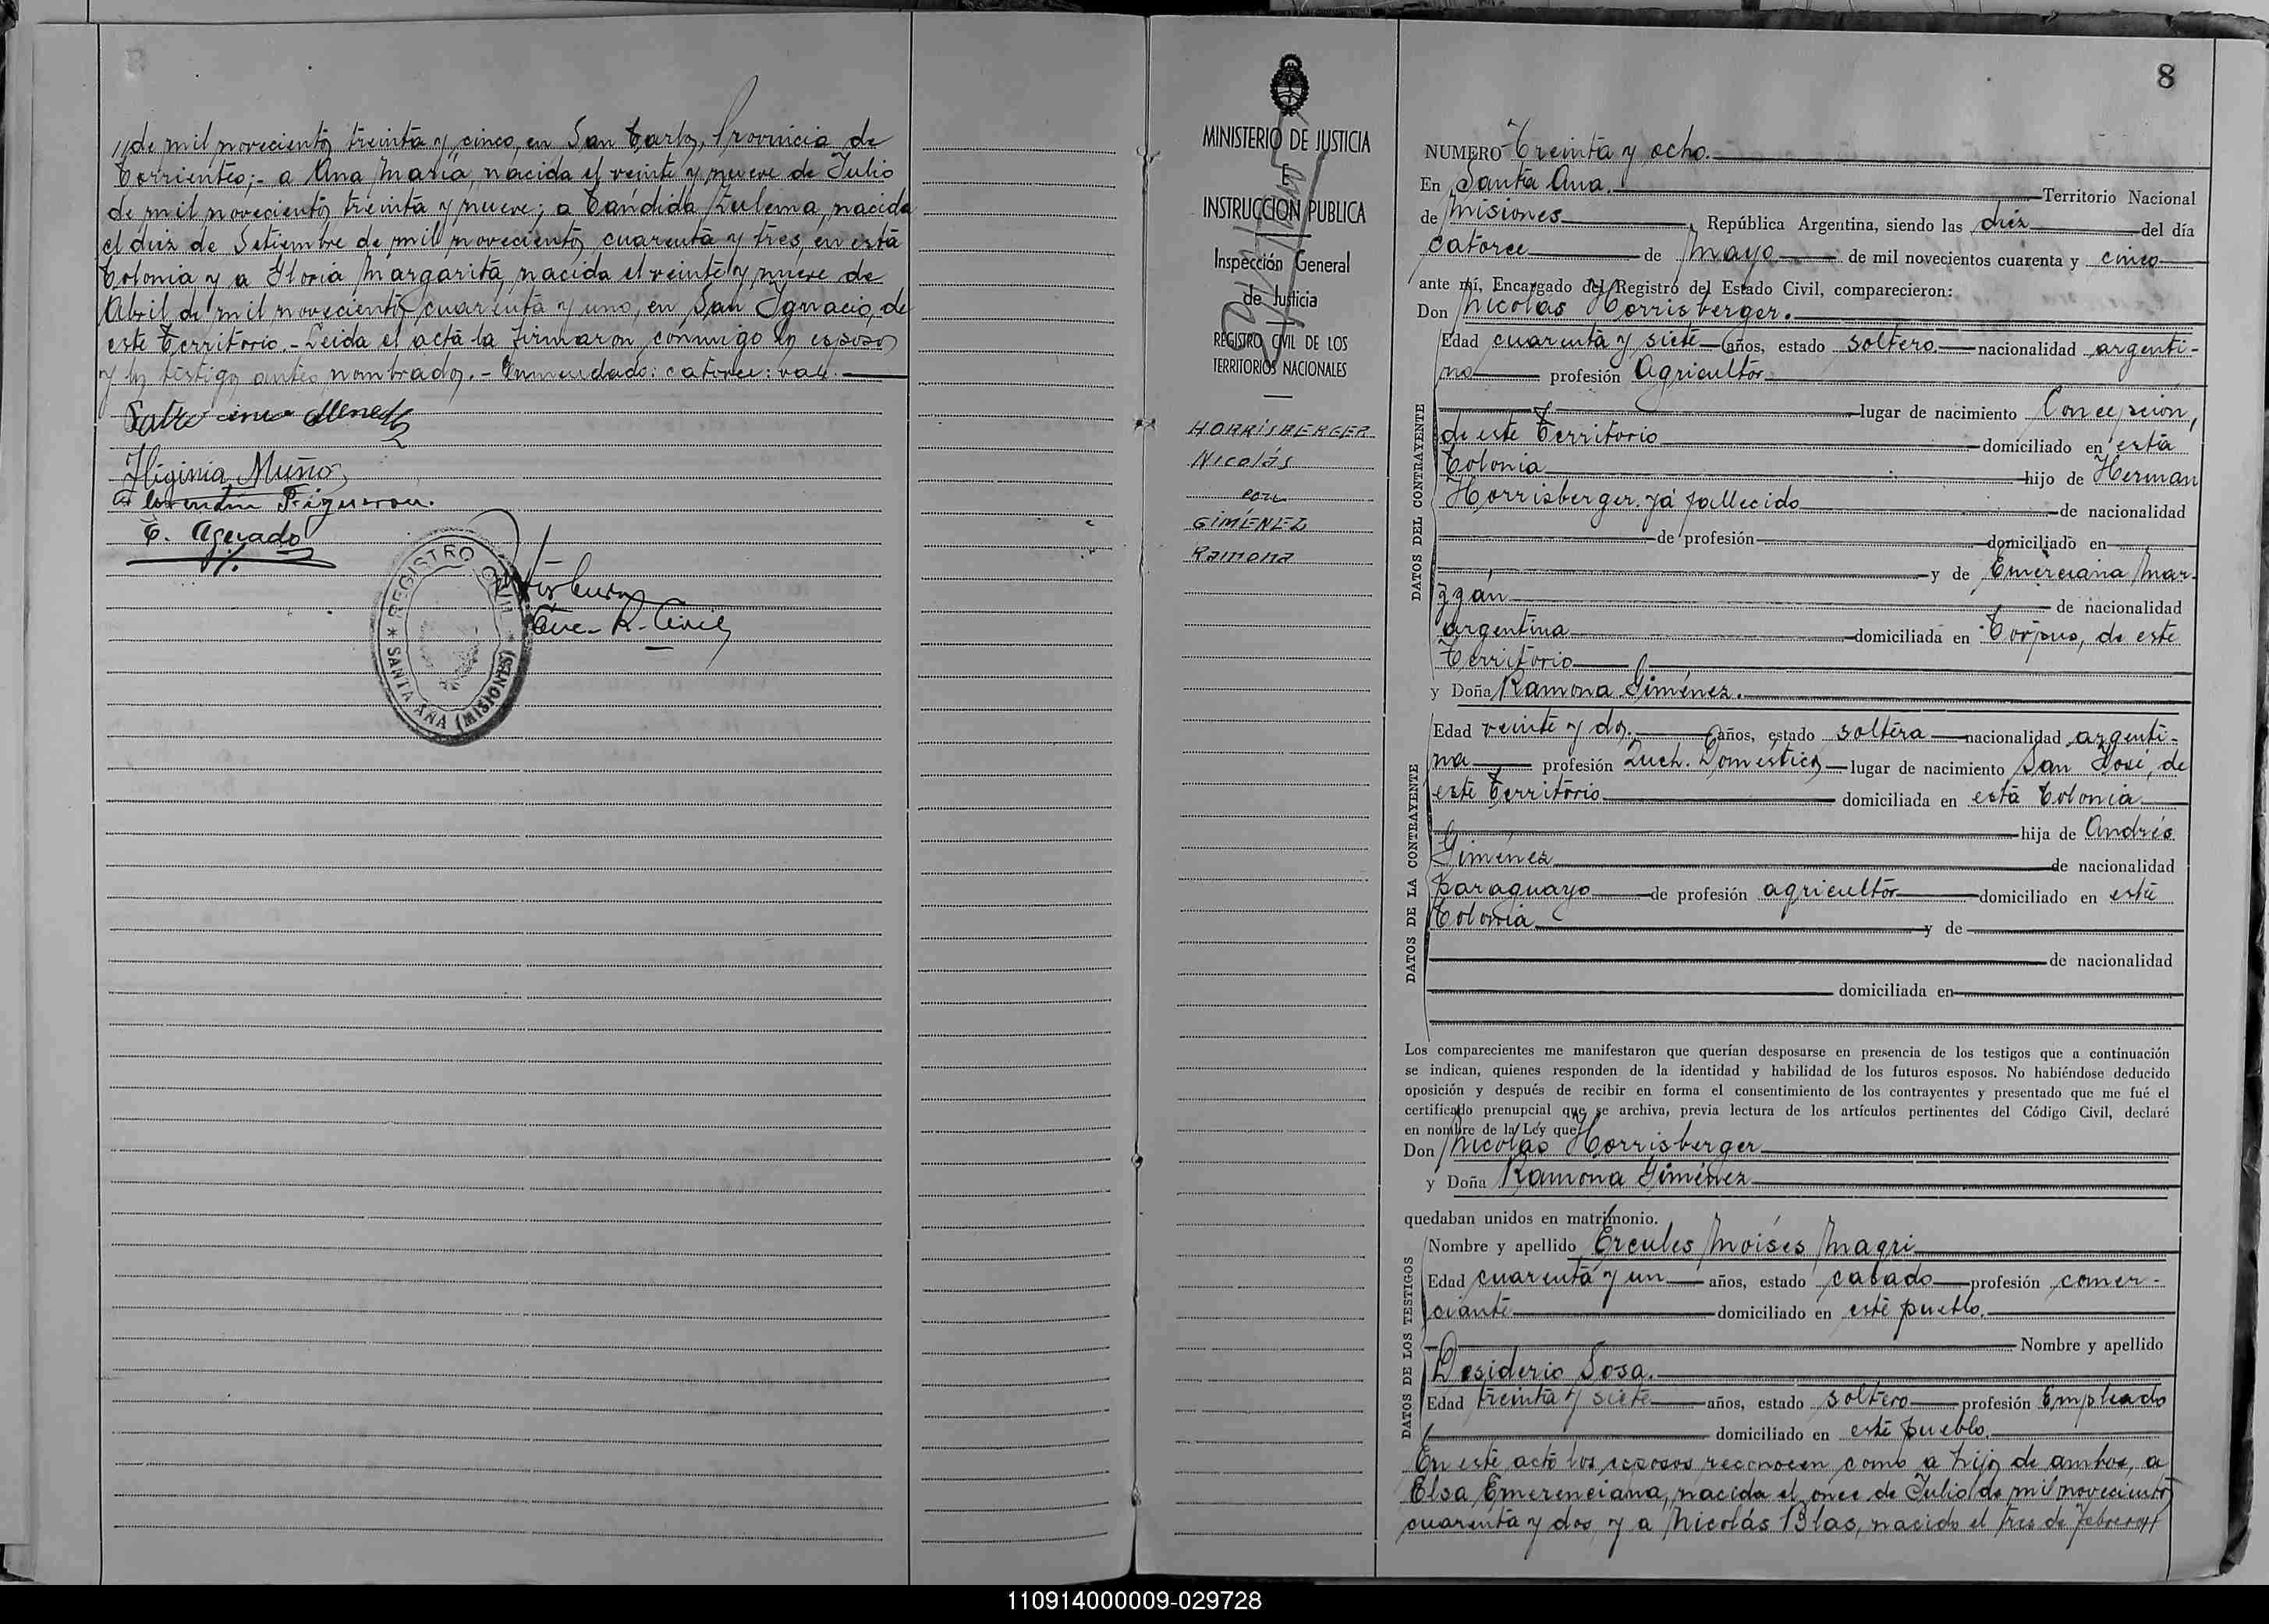 //de mil novecientos treinta y cinco, en San Carlos, Provincia de
Corrientes;- a Ana María, nacida el veinte y nueve de Julio
de mil novecientos treinta y nueve; a Cándida Zulema, nacida
el diez de Setiembre de mil novecientos cuarenta y tres, en esta
Colonia y a Gloria Margarita, nacida el veinte y nueve de
Abril de mil novecientos cuarenta y uno, en San Ignacio, de
este Territorio.- Leida el acta la firmaron conmigo los esposos
y los testigos antes nombrados.- Enmendado: catorce: vale.-
Higinia Muños
Figueroa.
C. Aguado
REGISTRO CIVIL
* SANTA ANA (MISIONES) *
Enc. R. Civil
MINISTERIO DE JUSTICIA
E
INSTRUCCION PUBLICA
Inspección General
de Justicia
REGISTRO CIVIL DE LOS
TERRITORIOS NACIONALES
HORRISBERGER
Nicolás
con
GIMÉNEZ
Ramona
8
NUMERO Treinta y ocho.
En Santa Ana. Territorio Nacional
de Misiones, República Argentina, siendo las diez del día
catorce de Mayo de mil novecientos cuarenta y cinco
ante mí, Encargado del Registro del Estado Civil, comparecieron:
Don Nicolás Horrisberger.
DATOS DEL CONTRAYENTE
Edad cuarenta y siete años, estado soltero. nacionalidad argenti-
no profesión Agricultor
lugar de nacimiento Concepción,
de este Territorio domiciliado en esta
Colonia hijo de Herman
Horrisberger. ya fallecido de nacionalidad
de profesión domiciliado en
y de Emerciana Mar-
zgán de nacionalidad
argentina domiciliada en Corpus, de este
Territorio
y Doña Ramona Giménez.
DATOS DE LA CONTRAYENTE
Edad veinte y dos. años, estado soltera nacionalidad argenti-
na profesión Queh. Domésticos lugar de nacimiento San José, de
este Territorio domiciliada en esta Colonia
hija de Andrés
Giménez de nacionalidad
paraguayo de profesión agricultor domiciliado en esta
Colonia y de
de nacionalidad
domiciliada en
Los comparecientes me manifestaron que querían desposarse en presencia de los testigos que a continuación
se indican, quienes responden de la identidad y habilidad de los futuros esposos. No habiéndose deducido
oposición y después de recibir en forma el consentimiento de los contrayentes y presentado que me fué el
certificado prenupcial que se archiva, previa lectura de los artículos pertinentes del Código Civil, declaré
en nombre de la Ley que
Don Nicolás Horrisberger
y Doña Ramona Giménez
quedaban unidos en matrimonio.
DATOS DE LOS TESTIGOS
Nombre y apellido Ercules Moisés Magri
Edad cuarenta y un años, estado casado profesión comer-
ciante domiciliado en este pueblo.
Nombre y apellido
Desiderio Sosa.
Edad treinta y siete años, estado soltero profesión Empleado
domiciliado en este pueblo.
En este acto los esposos reconocen como a hijos de ambos, a
Elsa Emerenciana, nacida el once de Julio de mil novecientos
cuarenta y dos y a Nicolás Blas, nacido el tres de febrero//
110914000009-029728